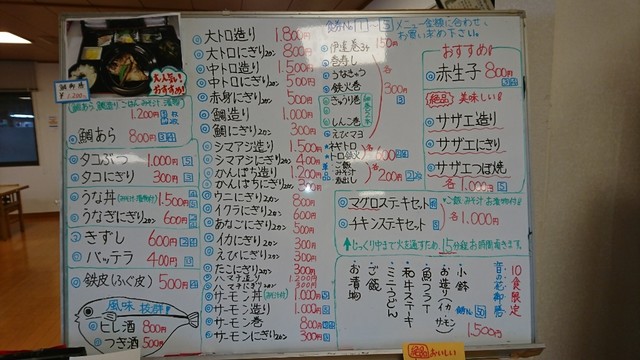 大人気!!
おすすめ!
鯛御膳
¥1,200
(鯛あら、鯛造り ごはん みそ汁 漬物)
1,200円
鯛あら 800円
タコぶつ 1,000円 5
タコにぎり 300円
うな丼 1,500円
うなぎにぎり2カン 600円
きずし 600円
バッテラ 400円
鉄皮(ふぐ皮) 500円
風味 抜群!
ヒレ酒 800円
つぎ酒 500円
大トロ造り 1,800円
大トロにぎり2カン 800円
中トロ造り 1,500円
中トロにぎり2カン 500円
赤身にぎり2カン 300円
鯛造り 1,000円
鯛にぎり2カン 300円
シマアジ造り 1,500円
シマアジにぎり2カン 400円
かんぱち造り 1,200円
かんぱちにぎり2カン 300円
ウニにぎり2カン 800円
イクラにぎり2カン 600円
あなごにぎり2カン 500円
イカにぎり2カン 300円
えびにぎり2カン 300円
たこにぎり2カン 300円
ハマチ造り 1,200円
ハマチにぎり2カン 300円
サーモン丼 1,000円
サーモン造り 1,000円
サーモン巻 800円
サーモンにぎり2カン 300円
食券No 1~5 メニュー金額に合わせ、
お買い求め下さい。
伊達巻3ヶ 150円
うなきゅう
鉄火巻
きゅうり巻
しんこ巻
えびマヨ
各300円
ネギトロ
トロ鉄火
各600円
ご飯
みそ汁
赤出し
各200円
おすすめ!
赤生子 800円
絶品 美味しい!
サザエ造り
サザエにぎり
サザエつぼ焼
各1,000円 5
マグロステキセット
チキンステキセット
ご飯 みそ汁 お漬物付
各1,000円
↑じっくり中まで火を通すため、15分程お時間頂きます。
10食限定
昔の花御膳
1,500円
・小鉢
・お造り イカ サーモン
・魚フライ
・和牛ステーキ
・ミニうどん
・ご飯
・お漬物
絶品 おいしい